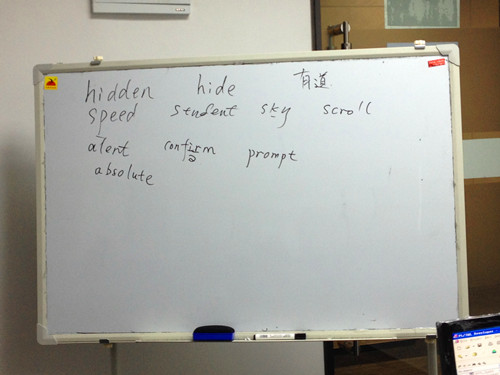 hidden hide 有道
speed student sky scroll
alert confirm prompt
absolute